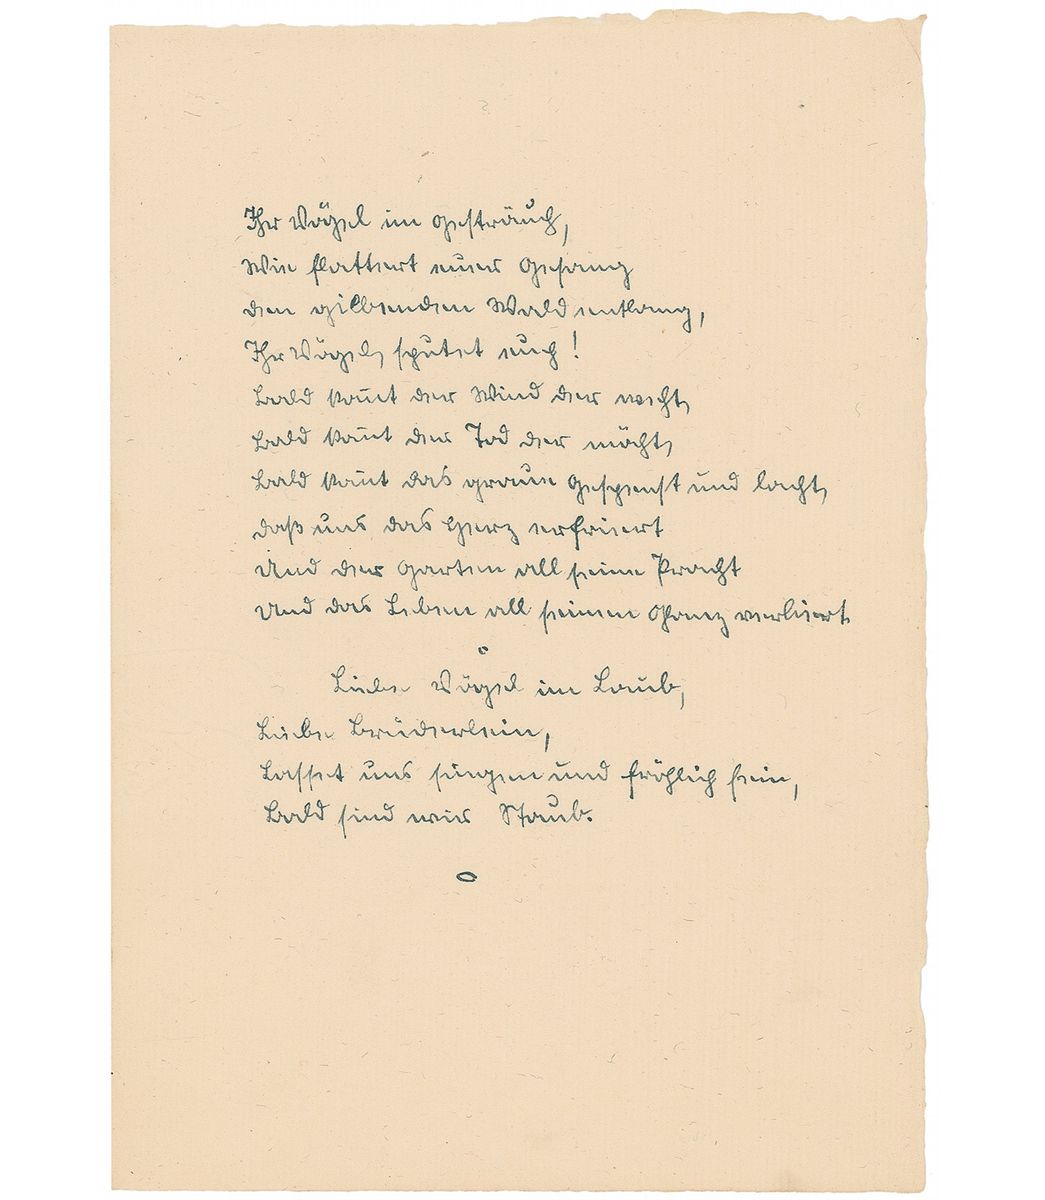 Ihr Vögel im Gesträuch,
Wie flattert euer Gesang
Den gilbenden Wald entlang,
Ihr Vögel, sputet euch!
Bald kom̄t der Wind der weht,
Bald kom̄t der Tod der mäht,
Bald kom̄t das graue Gespenst und lacht,
Daß uns das Herz erfriert
Und der Garten all seine Pracht
Und das Leben all seinen Glanz verliert.
Liebe Vögel im Laub,
Liebe Brüderlein,
Lasset uns singen und fröhlich sein,
Bald sind wir Staub.